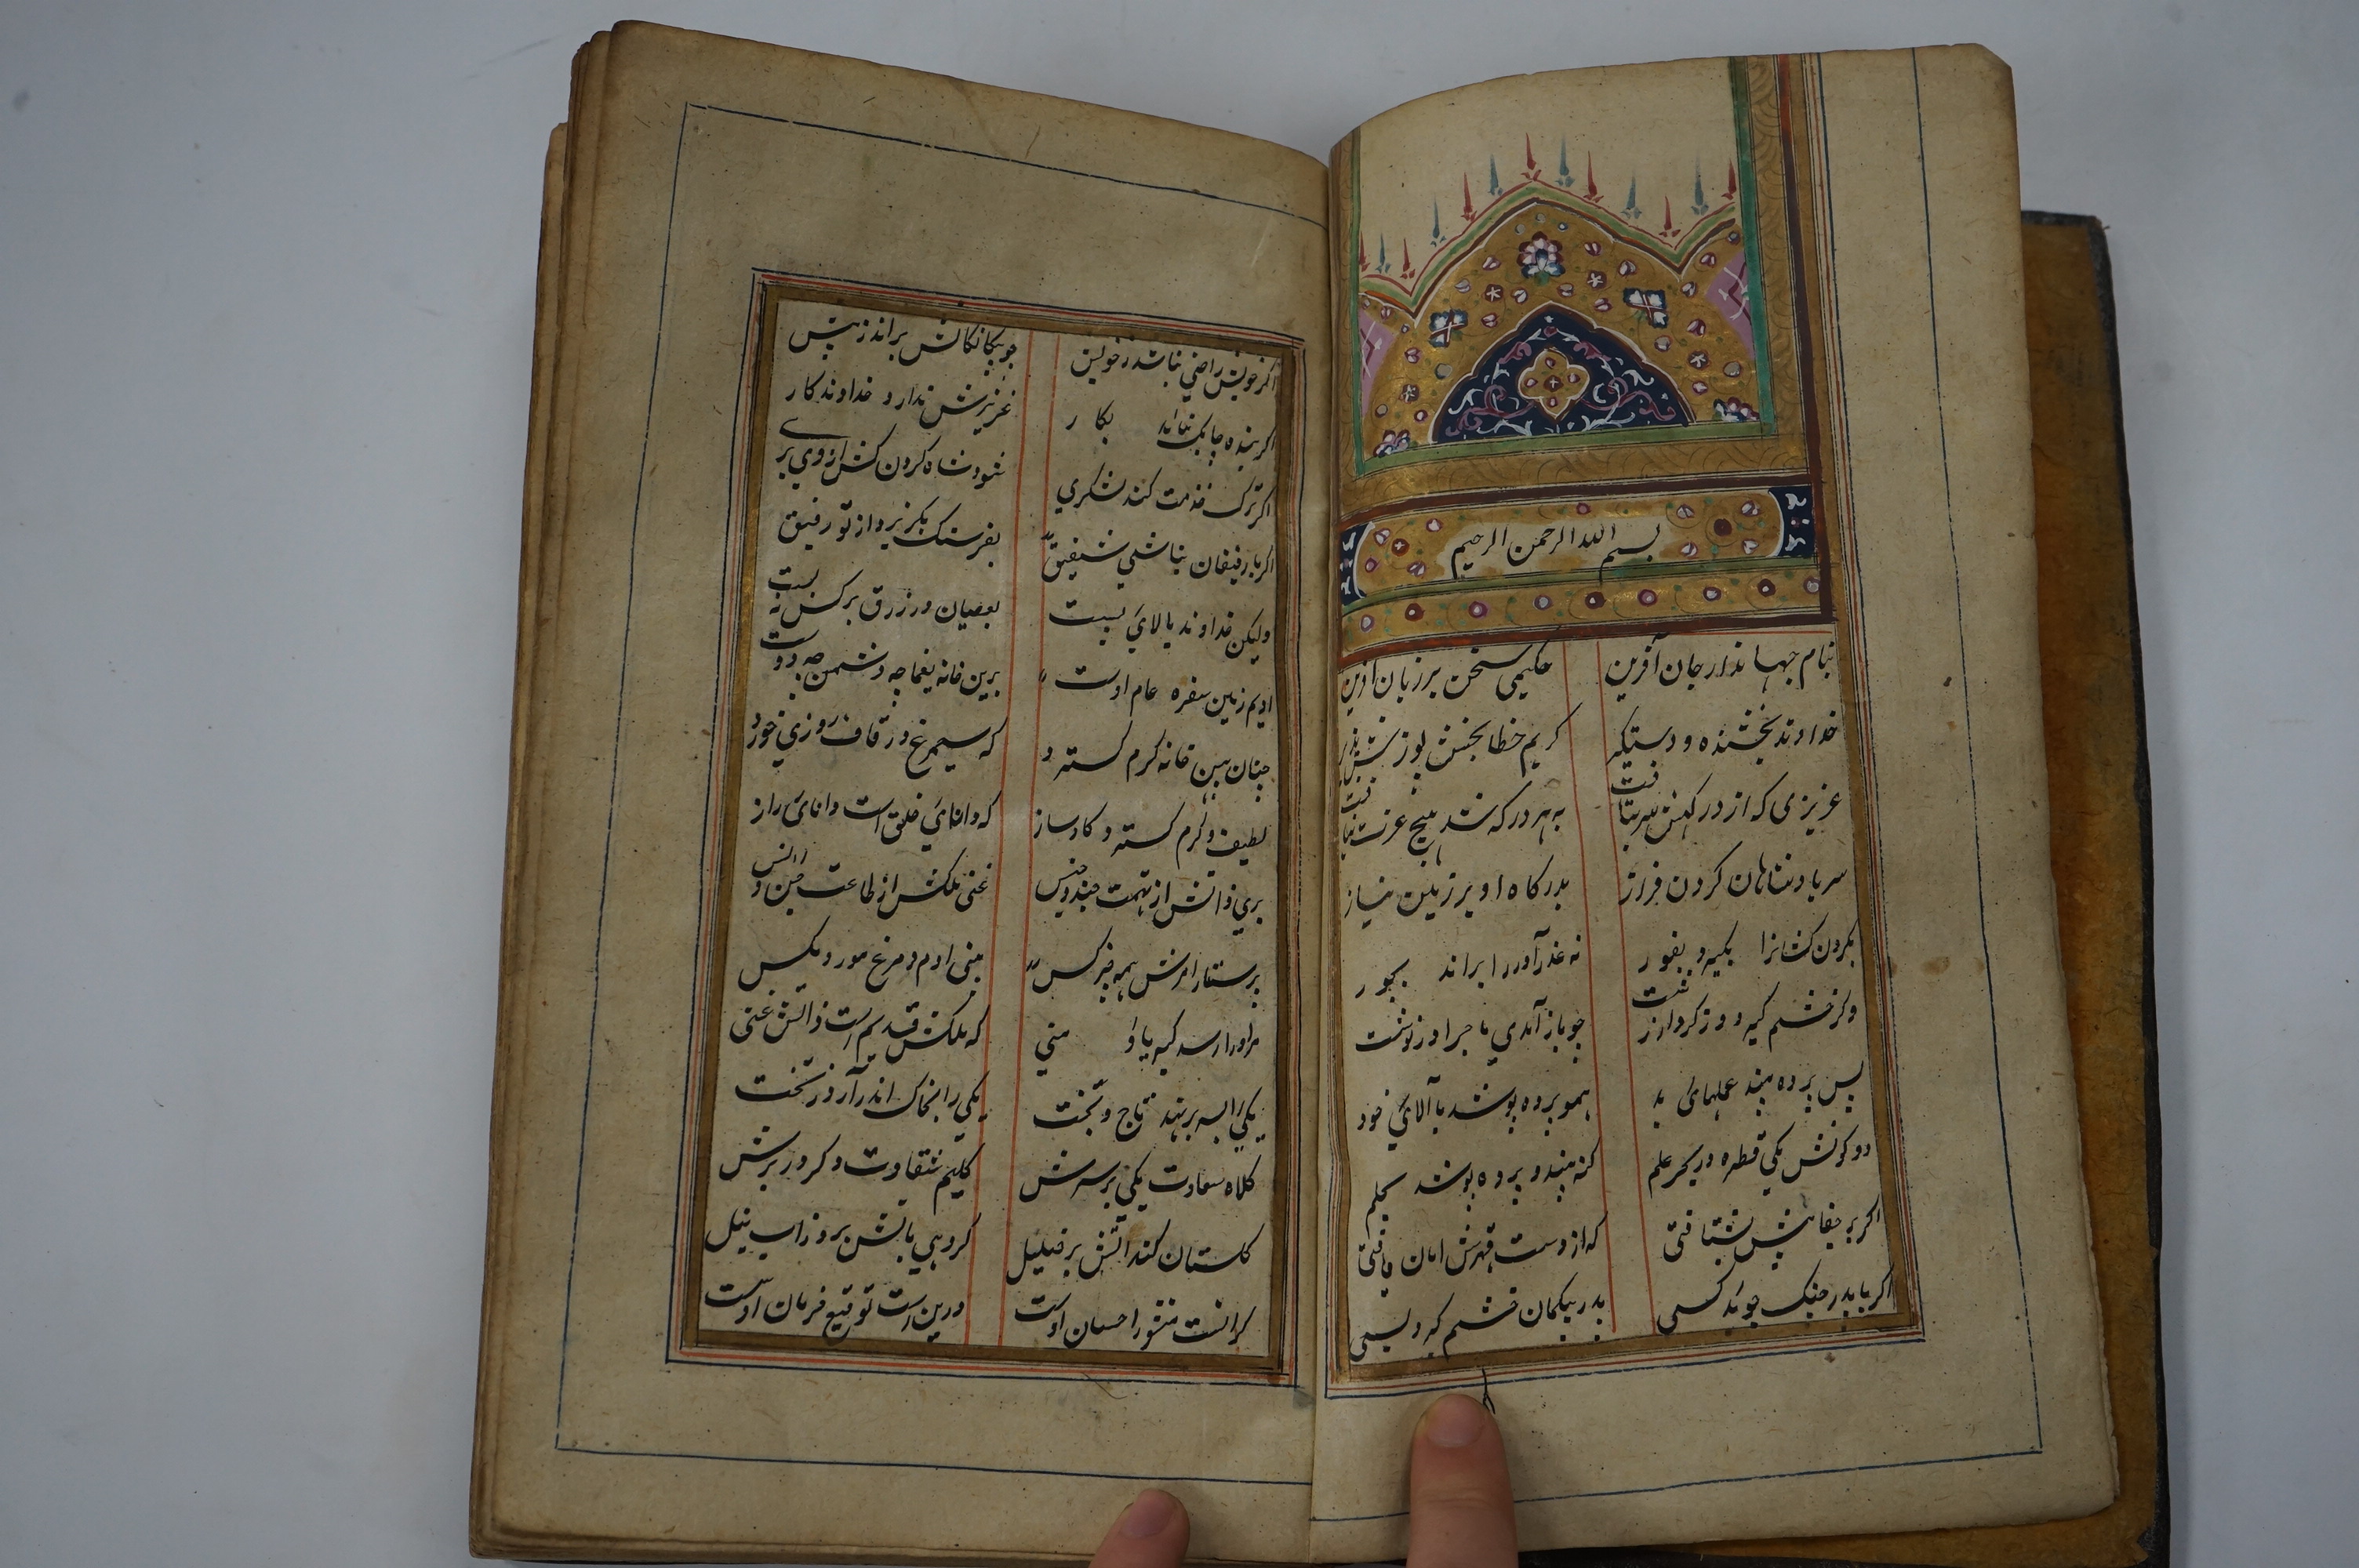 بسم الله الرحمن الرحیم
بنام جهاندار جان آفرین حکیمی سخن بر زبان آفرین
خداوند بخشنده و دستکیر کریم خطابخش پوزش پذیر
عزیزی که از درکهش سر بتافت به هر در که شد هیچ عزت نیافت
سر پادشاهان کردن فراز بدرکاه او بر زمین نیاز
نکردن کشانرا بکیرد بفور نه عذرآور را براند بجور
وکر خشم کیرد ز کردار زشت چو باز آمدی ماجرا در نوشت
پس پرده بیند عملهای بد همو پرده پوشد بآلای خود
دو کونش یکی قطره در بحر علم کنه بیند و پرده پوشد بحلم
اکر بر جفا پیش بشتافتی که از دست قهرش امان یافتی
اکر با پدر جنک جوید کسی پدر بیکمان خشم کیرد بسی
اکر خویش راضی نباشد ز خویش چو بیکانکانش براند ز پیش
اکر بنده چابک نیاید بکار عزیزش ندارد خداوندکار
اکر ترک خدمت کند لشکری شود شاه کردن کش از وی بری
اکر با رفیقان نباشی شفیق بفرسنک بکریزد از تو رفیق
ولیکن خداوند بالای پست بعصیان در رزق بر کس نبست
ادیم زمین سفره عام اوست برین خانه یغما چه دشمن چه دوست
چنان بین خانه کرم کسترد که سیمرغ در قاف روزی خورد
لطیف و کرم کستر و کارساز که دانای خلق است و دانای راز
بری ذاتش از تهمت ضد و جنس غنی ملکش از طاعت جن و انس
پرستار امرش همه چیز و کس بنی ادم و مرغ و مور و مکس
مر او را رسد کبریا و منی که ملکش قدیم است ذاتش غنی
یکی را بسر بر نهد تاج و تخت یکی را بخاک اندر آرد ز تخت
کلاه سعادت یکی بر سرش کلیم شقاوت دکر در برش
کلستان کند اتش بر خلیل کروهی باتش برد ز اب نیل
کر آنست منشور احسان اوست ور این است توقیع فرمان اوست